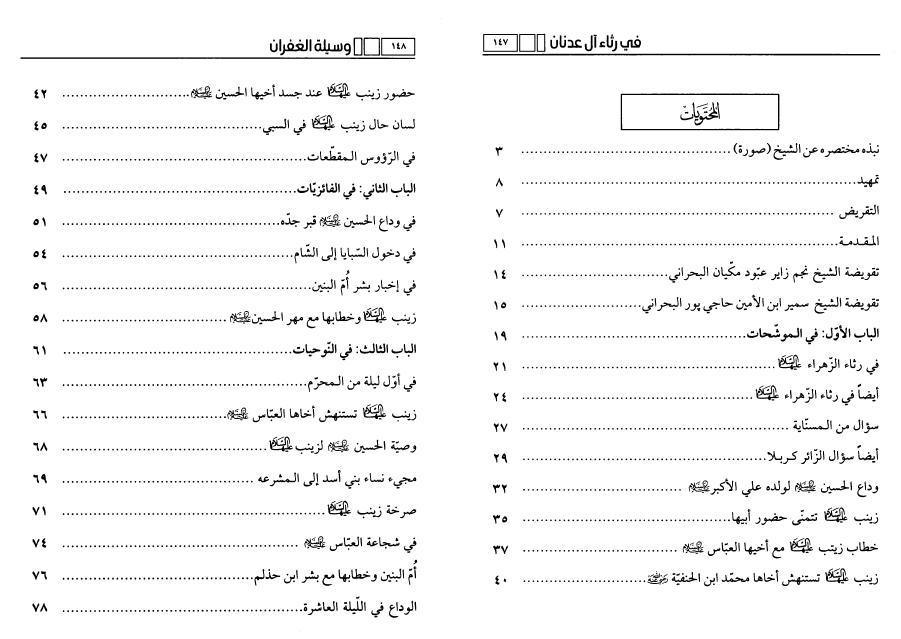 في رثاء آل عدنان ١٤٧
المحتويات
نبذه مختصره عن الشيخ (صورة) ........ ٣
تمهيد ........ ٨
التقريض ........ ٧
المقدمة ........ ١١
تقويضة الشيخ نجم زاير عبّود مگيان البحراني ........ ١٤
تقويضة الشيخ سمير ابن الأمين حاجي پور البحراني ........ ١٥
الباب الأوّل: في الموشّحات ........ ١٩
في رثاء الزّهراء عليها السلام ........ ٢١
أيضاً في رثاء الزّهراء عليها السلام ........ ٢٤
سؤال من المسنّاية ........ ٢٧
أيضاً سؤال الزّائر كربلا ........ ٢٩
وداع الحسين عليه السلام لولده علي الأكبر عليه السلام ........ ٣٢
زينب عليها السلام تتمنّى حضور أبيها ........ ٣٥
خطاب زينب عليها السلام مع أخيها العبّاس عليه السلام ........ ٣٧
زينب عليها السلام تستنهش أخاها محمّد ابن الحنفيّة ........ ٤٠
١٤٨ وسيلة الغفران
حضور زينب عليها السلام عند جسد أخيها الحسين عليه السلام ........ ٤٢
لسان حال زينب عليها السلام في السبي ........ ٤٥
في الرّؤوس المقطّعات ........ ٤٧
الباب الثاني: في الفائزيّات ........ ٤٩
في وداع الحسين عليه السلام قبر جدّه ........ ٥١
في دخول السّبايا إلى الشّام ........ ٥٤
في إخبار بشر أُمّ البنين ........ ٥٦
زينب عليها السلام وخطابها مع مهر الحسين عليه السلام ........ ٥٨
الباب الثالث: في النّوحيات ........ ٦١
في أوّل ليلة من المحرّم ........ ٦٣
زينب عليها السلام تستنهش أخاها العبّاس عليه السلام ........ ٦٦
وصيّة الحسين عليه السلام لزينب عليها السلام ........ ٦٨
مجيء نساء بني أسد إلى المشرعه ........ ٦٩
صرخة زينب عليها السلام ........ ٧١
في شجاعة العبّاس عليه السلام ........ ٧٤
أُمّ البنين وخطابها مع بشر ابن حذلم ........ ٧٦
الوداع في اللّيلة العاشرة ........ ٧٨